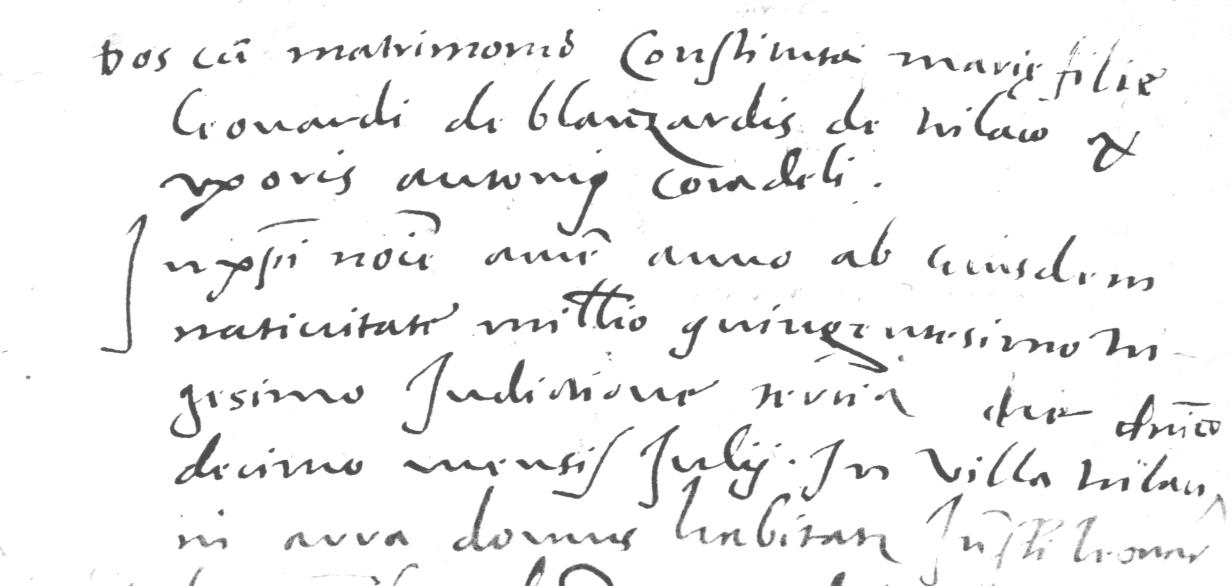 Dos cũ matrimonio Constituta marie filie
leonardi de blanzardis de vilaco &
vxoris antonij coradeli.
In xp̄i noīe amē anno ab eiusdem
natiuitate millio quingentesimo vi
gesimo Indictione tertia die dn̄ico
decimo mensis Julij. In villa vilan
in aera domus habitatae leonar